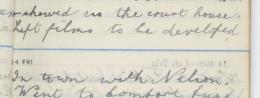 showed us the court house.
Left films to be developed
14 FRI
In town with Nelson.
Went to Comfort fund